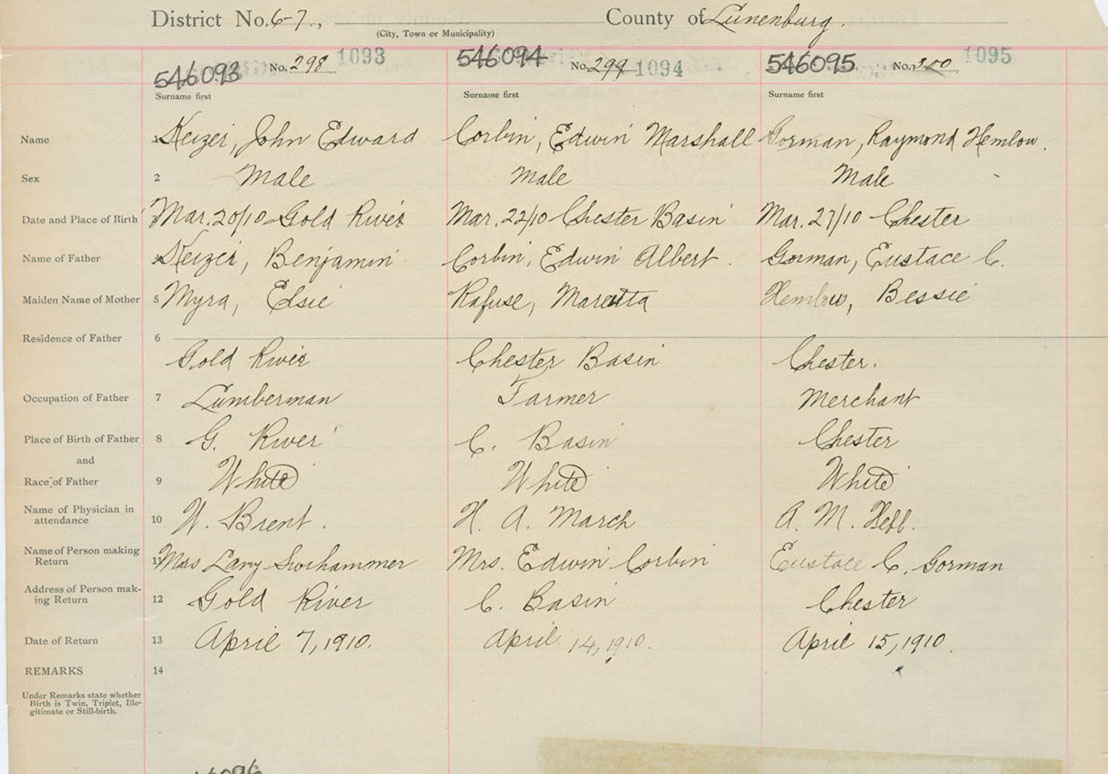 District No. 6-7, County of Lunenburg.
(City, Town or Municipality)
546093 No. 298 1093 546094 No. 299 1094 546095 No. 300 1095
Surname first Surname first Surname first
Name 1 Keizer, John Edward Corbin, Edwin Marshall Gorman, Raymond Hemlow.
Sex 2 Male Male Male
Date and Place of Birth 3 Mar. 20/10 Gold River Mar. 22/10 Chester Basin Mar. 27/10 Chester
Name of Father 4 Keizer, Benjamin Corbin, Edwin Albert. Gorman, Eustace C.
Maiden Name of Mother 5 Myra, Elsie Rafuse, Maretta Hemlow, Bessie
Residence of Father 6
Gold River Chester Basin Chester.
Occupation of Father 7 Lumberman Farmer Merchant
Place of Birth of Father 8 G. River C. Basin Chester
and
Race of Father 9 White White White
Name of Physician in attendance 10 W. Brent. H. A. March A. M. Hebb.
Name of Person making Return 11 Mrs Mrs. Edwin Corbin Eustace C. Gorman
Address of Person mak-
ing Return 12 Gold River C. Basin Chester
Date of Return 13 April 7, 1910. April 14, 1910. April 15, 1910.
REMARKS 14
Under Remarks state whether
Birth is Twin, Triplet, Ille-
gitimate or Still-birth.